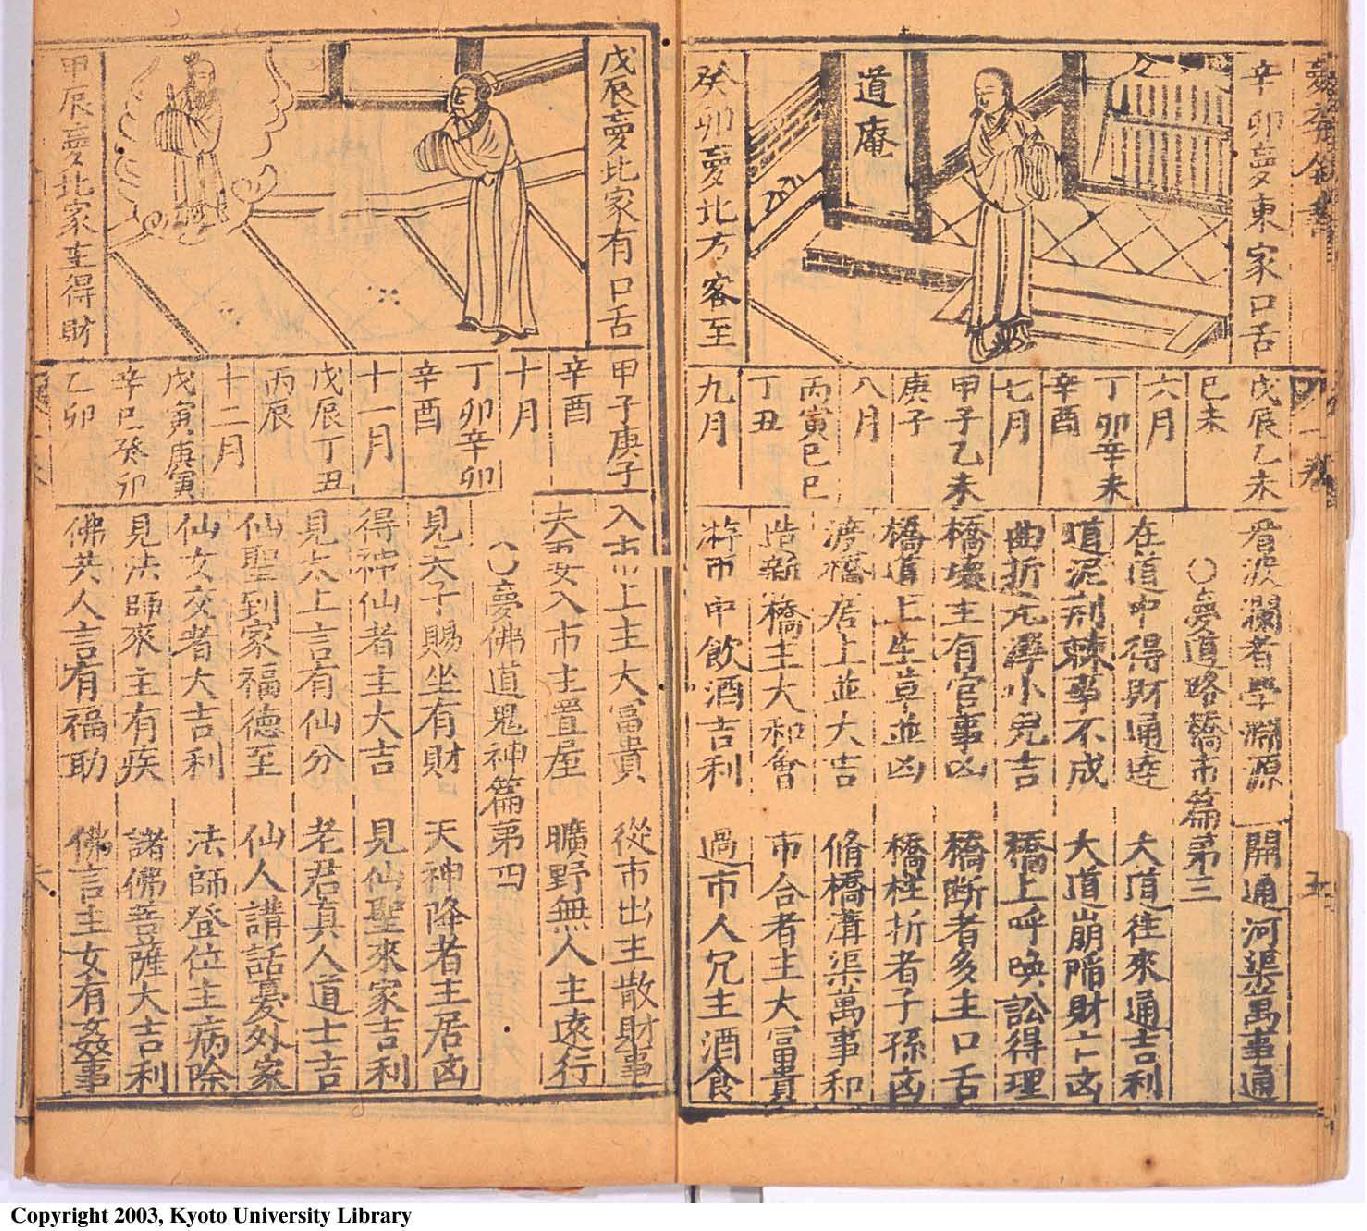 辛卯夢東家口舌
道庵
癸卯夢北方客至
戊辰乙未
巳未
六月
丁卯辛未
辛酉
七月
甲子乙未
庚子
八月
丙寅巳巳
丁丑
九月
看波瀾者學淵源 開通河渠萬事通
〇夢道路橋市篇第三
在道中得財通達 大道往來通吉利
道泥荊棘事不成 大道崩陷財亡凶
曲折 小兒吉 橋上呼喚訟得理
橋壞主有官事凶 橋断者多主口舌
橋道上生草並凶 橋柱折者子孫凶
渡橋居上並大吉 脩橋溝渠萬事和
造新橋主大和會 市合者主大冨貴
市中飲酒吉利 過市人 主酒食
戊辰夢比家有口舌
甲辰夢北家主得財
甲子庚子
辛酉
十月
丁卯辛卯
辛酉
十一月
戊辰丁丑
丙辰
十二月
戊寅庚寅
辛巳癸卯
乙卯
入市上主大冨貴 從市出主散財事
夫妻入市主置産 曠野無人主遠行
〇夢佛道鬼神篇第四
見天子賜坐有財 天神降者主居凶
得神仙者主大吉 見仙聖來家吉利
見太上言有仙分 老君真人道士吉
仙聖到家福德至 仙人講話憂外家
仙女交者大吉利 法師登位主病除
見法師來主有疾 諸佛菩薩大吉利
佛共人言有福助 佛言主女有姦事
Copyright 2003, Kyoto University Library